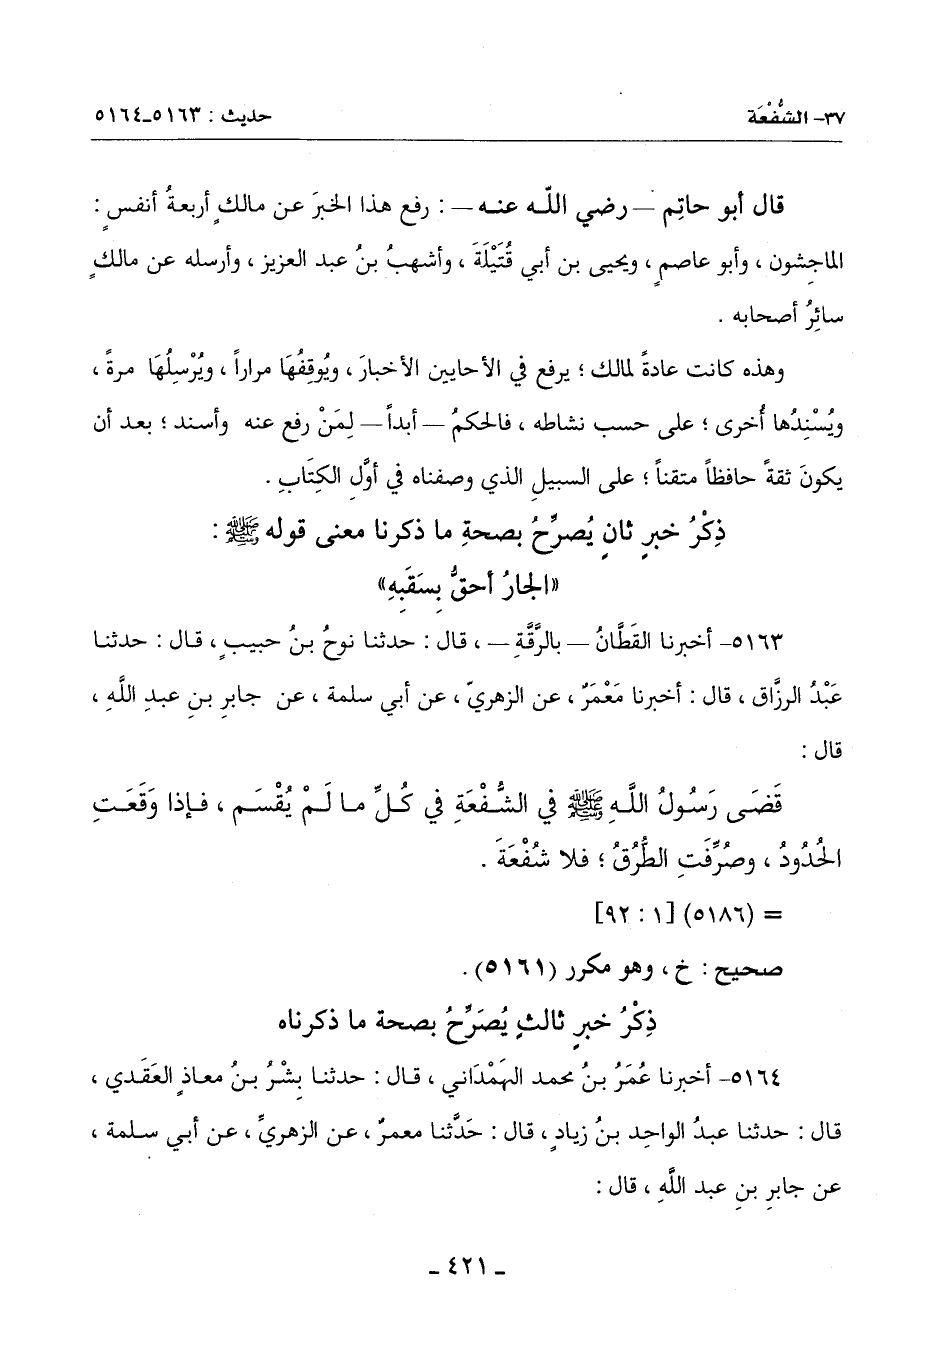 ٣٧- الشُّفْعَة حديث : ٥١٦٣-٥١٦٤
قال أبو حاتِم – رضي اللَّه عنه – : رفع هذا الخبرَ عن مالكٍ أربعةُ أنفسٍ :
الماجِشون ، وأبو عاصمٍ ، ويحيى بن أبي قُتَيْلَةَ ، وأشهبُ بنُ عبد العزيز ، وأرسله عن مالكٍ
سائِرُ أصحابه .
وهذه كانت عادةً لمالك ؛ يرفع في الأحايين الأخبارَ ، ويُوقِفُهَا مراراً ، ويُرْسِلُهَا مرةً ،
ويُسْنِدُها أُخرى ؛ على حسب نشاطه ، فالحكمُ – أبداً – لِمَنْ رفع عنه وأسند ؛ بعد أن
يكونَ ثقةً حافظاً متقناً ؛ على السبيلِ الذي وصفناه في أوَّلِ الكِتَابِ .
ذِكْرُ خبرٍ ثانٍ يُصرِّحُ بصحةِ ما ذكرنا معنى قوله ﷺ :
«الجارُ أحقُّ بِسَقَبِهِ»
٥١٦٣- أخبرنا القَطَّانُ – بالرَّقَّةِ – ، قال : حدثنا نوحُ بنُ حبيبٍ ، قال : حدثنا
عَبْدُ الرزَّاق ، قال : أخبرنا مَعْمَرٌ ، عن الزهريّ ، عن أبي سلمة ، عن جابرِ بنِ عبدِ اللَّهِ ،
قال :
قَضَى رَسُولُ اللَّهِ ﷺ في الشُّفْعَةِ في كُلِّ ما لَمْ يُقْسَم ، فإذا وَقَعَتِ
الحُدُودُ ، وصُرِّفَتِ الطُّرُقُ ؛ فلا شُفْعَةَ .
= (٥١٨٦) [١ : ٩٢]
صحيح : خ ، وهو مكرر (٥١٦١) .
ذِكْرُ خبرٍ ثالثٍ يُصَرِّحُ بصحة ما ذكرناه
٥١٦٤- أخبرنا عُمَرُ بنُ محمد الهَمْدَاني ، قال : حدثنا بِشْرُ بنُ معاذٍ العَقَدي ،
قال : حدثنا عبدُ الواحِد بنُ زيادٍ ، قال : حَدَّثنا معمرٌ ، عن الزهريِّ ، عن أبي سلمة ،
عن جابرِ بنِ عبد اللَّهِ ، قال :
- ٤٢١ -